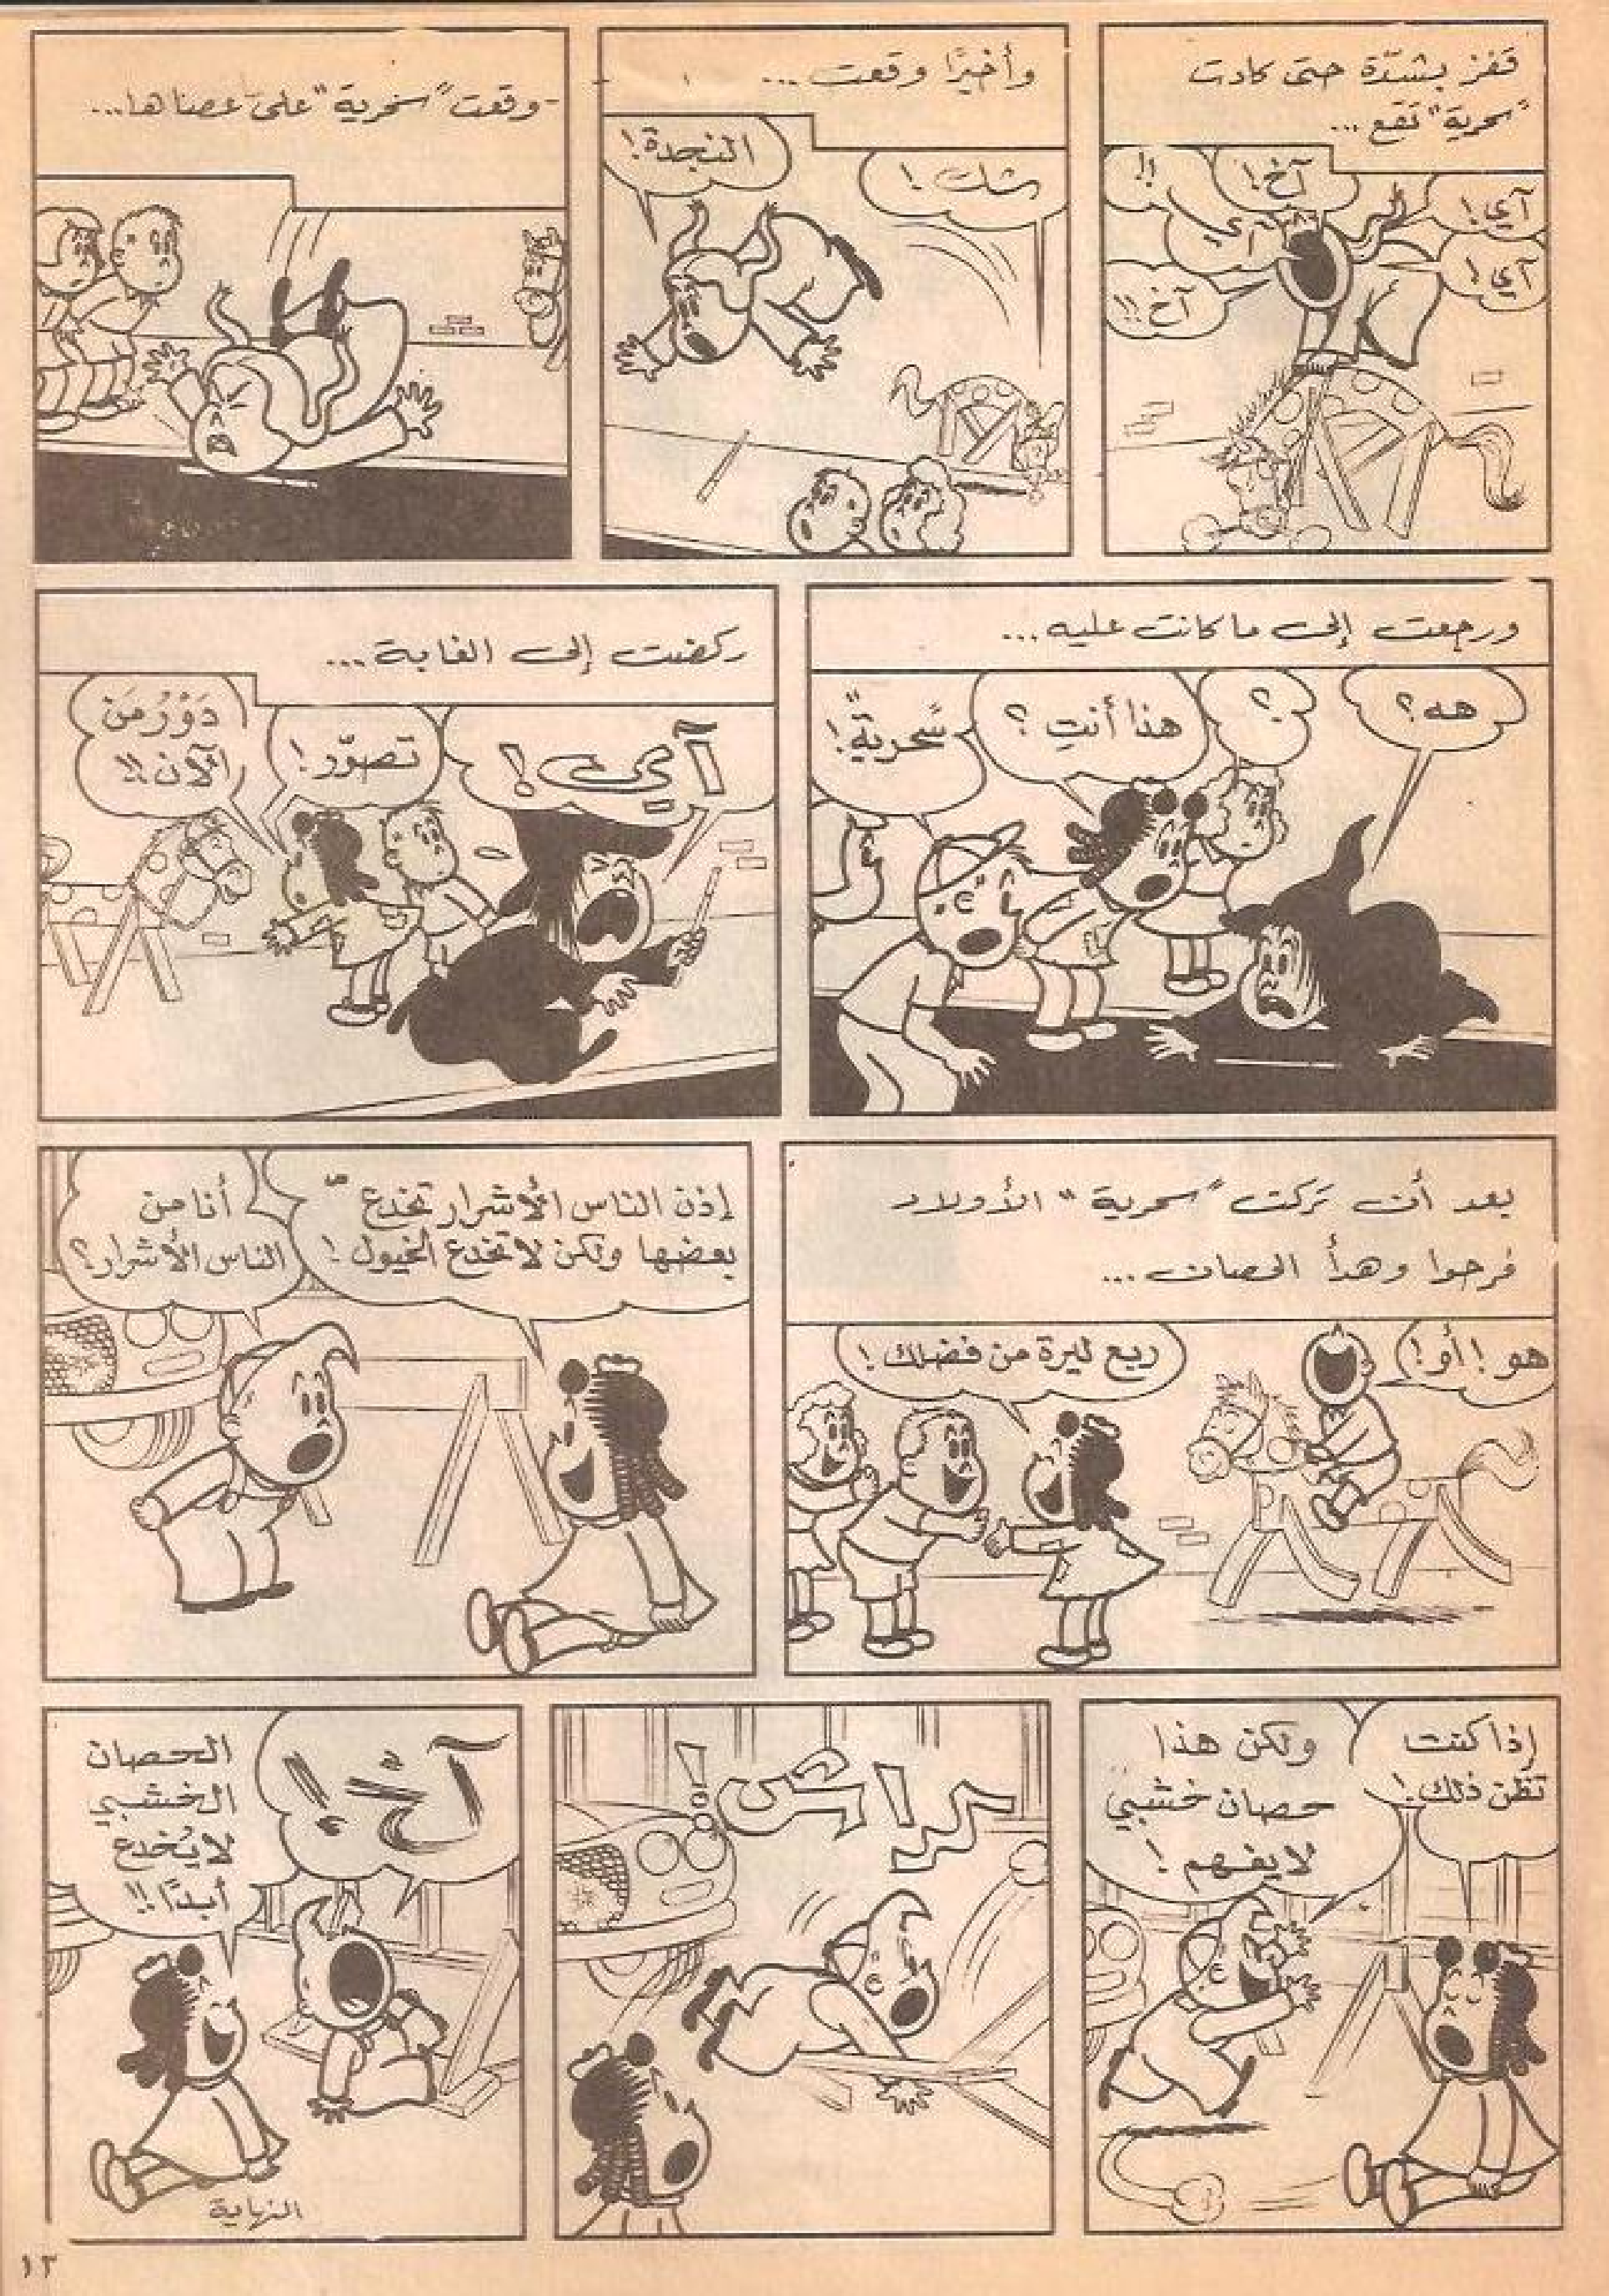 قفز بشدّة حتى كادت
"سحرية" تقع...
آي!
آي!
آخ!
آي
!!
آخ!!
وأخيرًا وقعت...
شك!
النجدة!
وقعت "سحرية" على عصاها...
ورجعت إلى ما كانت عليه...
هه؟
؟
هذا أنتِ؟
سحرية!
ركضت إلى الغابة...
آي!
تصوّر!
دَوْرُ مَن
الآن!!
بعد أن تركت "سحرية" الأولاد
فرحوا وهدأ الحصان...
هو! أو!
ربع ليرة من فضلك!
إذن الناس الأشرار تخدع
بعضها ولكن لا تخدع الخيول!
أنا من
الناس الأشرار؟
إذا كنت
تظن ذلك!
ولكن هذا
حصان خشبي
لا يفهم!
كراش!
آخ!!
الحصان
الخشبي
لا يُخدع
أبدًا!!
النهاية
١٣